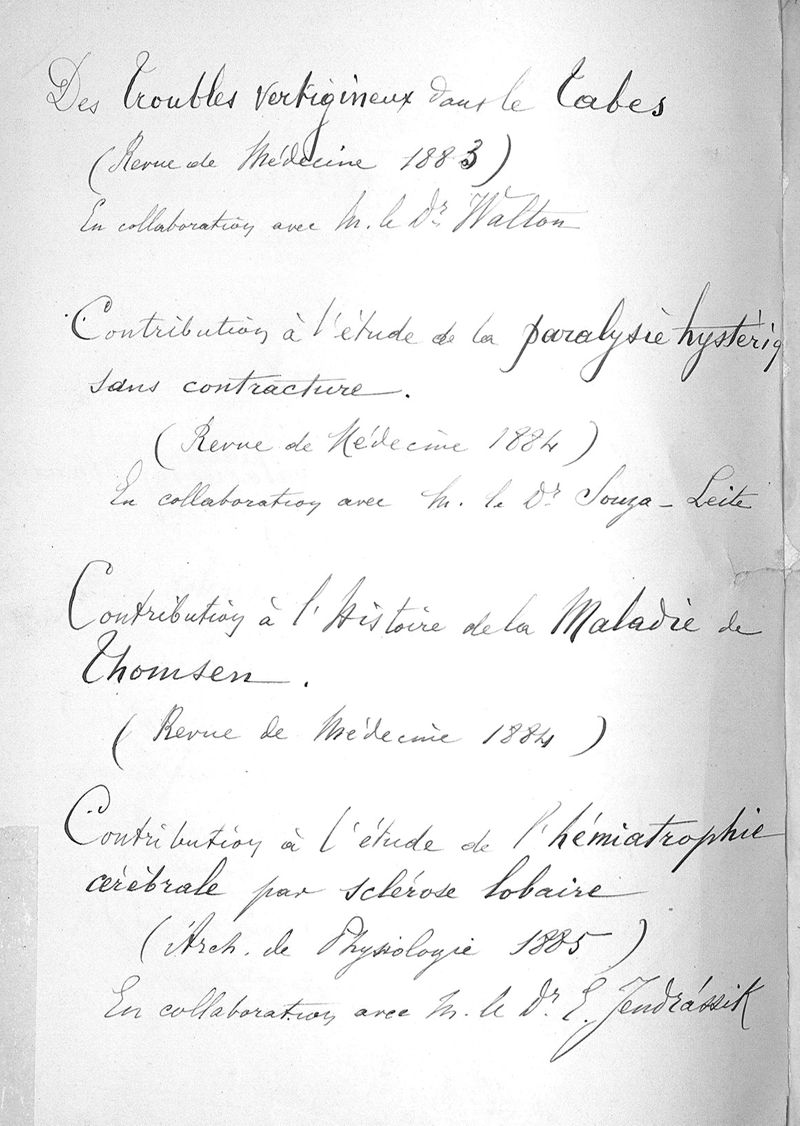 Des Troubles vertigineux dans le Tabes
(Revue de Médecine 1883)
En collaboration avec M. le Dr. Walton
Contribution à l'étude de la paralysie hystériq
sans contracture.
(Revue de Médecine 1884)
En collaboration avec M. le Dr. Souza-Leite
Contribution à l'Histoire de la Maladie de
Thomsen.
(Revue de Médecine 1884)
Contribution à l'étude de l'hémiatrophie
cérébrale par sclérose lobaire
(Arch. de Physiologie 1885)
En collaboration avec M. le Dr. E. Jendrássik